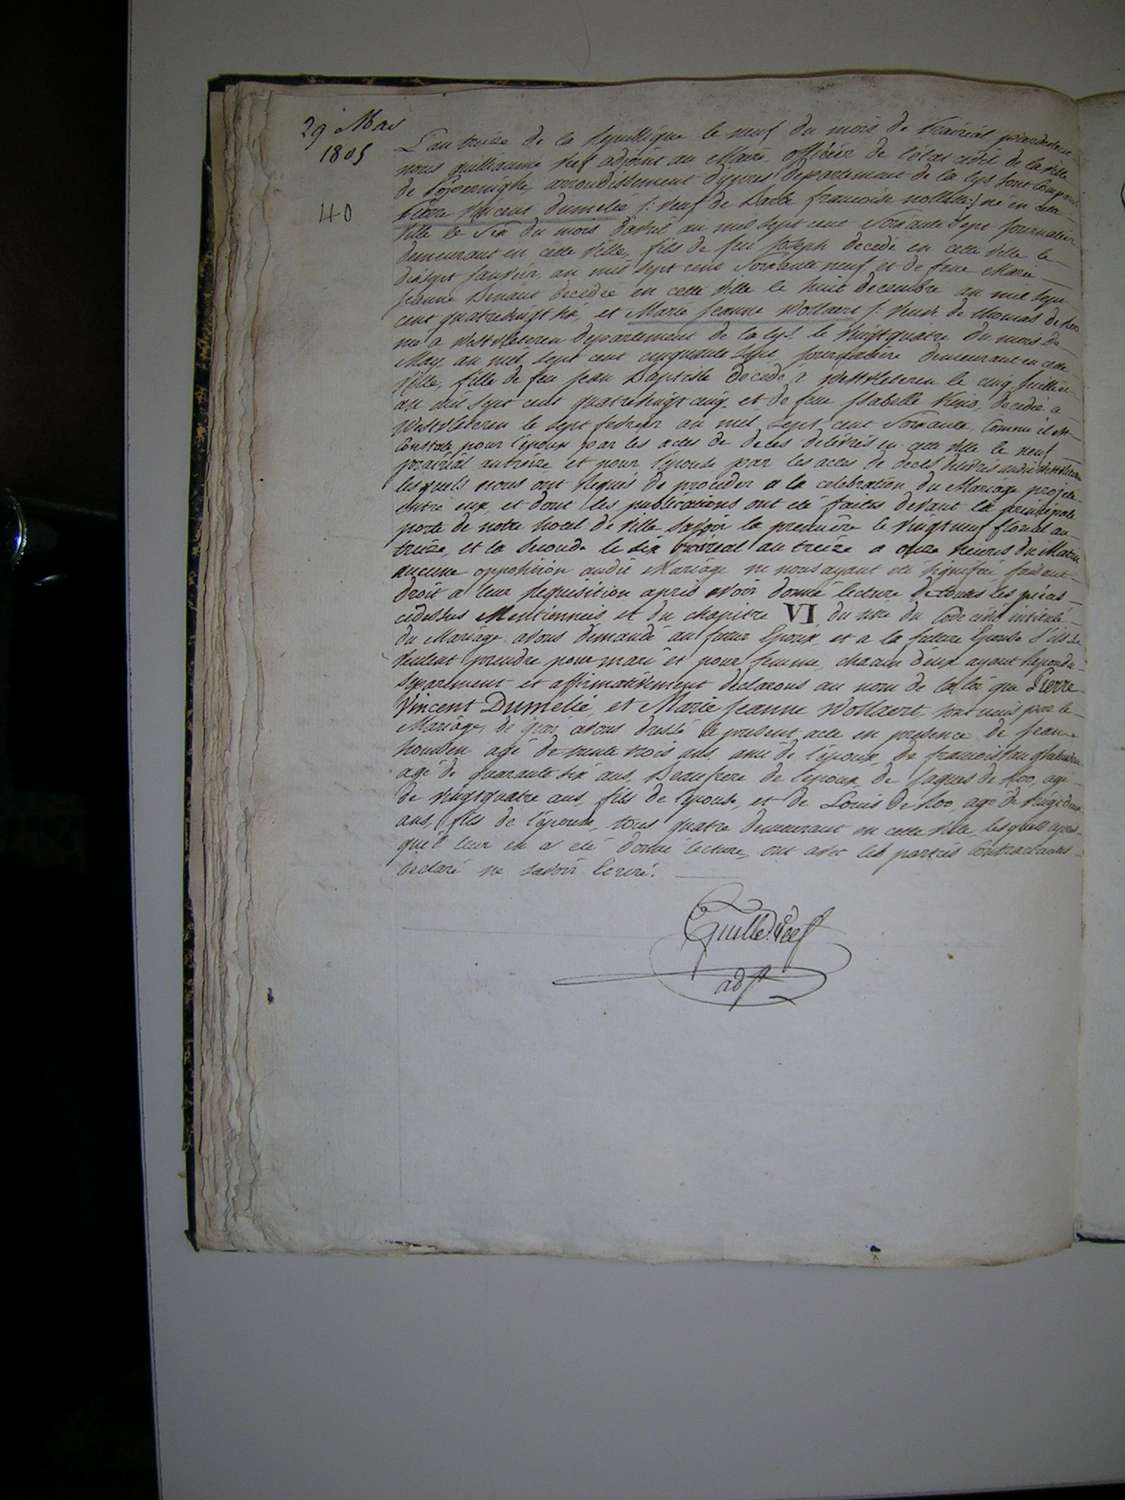 29 Mai
1805
40
L'an treize de la Republique le neuf du mois de Prairial pardevant
nous guillaume Neef adjoint au Maire officier de l'état civil de la ville
de Poperinghe, arrondissement d'ypres departement de la Lys sont comparus
Pierre Vincent Dumelie /: veuf de Barbe francoise :/ né en cette
ville le Six du mois d'avril an mil sept cent Soixante Sept journalier
demeurant en cette ville, fils de feu Joseph decedé en cette ville le
dixsept Janvier an mil sept cent Soixante neuf et de feue Marie
Jeanne decedée en cette ville le huit decembre an mil sept
cent quatrevingt et Marie Jeanne Wollaert /: veuve de thomas de Roo
née a Westvleteren departement de la Lys le vingtquatre du mois de
May an mil sept cent cinquante sept, journaliere demeurant en cette
ville, fille de feu Jean Baptiste decedé a Westvleteren le cinq
an mil sept cent quatrevingt cinq et de feue Isabelle decedée a
Westvleteren le sept fevrier an mil sept cent Soixante, Comme il est
Constaté pour l'epoux par les actes de deces delivrés en cette ville le neuf
prairial an treize et pour l'epouse par les actes de deces delivrés audit Westvleteren
lesquels nous ont requis de proceder a la celebration du Mariage projeté
entre eux et dont les publications ont été faites devant la principale
porte de notre hotel de ville savoir la premiere le vingt neuf floreal an
treize, et la seconde le six Prairial an treize a onze heures du Matin
aucune opposition audit Mariage ne nous ayant été signifiée faisant
droit a leur requisition apres avoir donné lecture de toutes les pieces
cidessus Mentionnés et du chapitre VI du titre du Code civil intitulé
du Mariage avons demandé au futur Epoux et a la future Epouse s'ils
veulent prendre pour mari et pour femme, chacun d'eux ayant repondu
separement et affirmativement declarons au nom de la loi que Pierre
Vincent Dumelie et Marie Jeanne Wollaert sont unis par le
Mariage, de quoi avons dressé le present acte en presence de Jean
houdem agé de trente trois ans, ami de l'epoux, de francois
agé de quarante six ans, Beaufrere de l'epoux, de Jaques de Roo, agé
de vingtquatre ans, fils de l'epouse, et de Louis de Roo, agé de vingt deux
ans, fils de l'epouse, tous quatre demeurant en cette ville, lesquels apres
qu'il leur en a été donné lecture, ont avec les parties Contractantes
declaré ne savoir Ecrire.
Guill. Neef
adjt